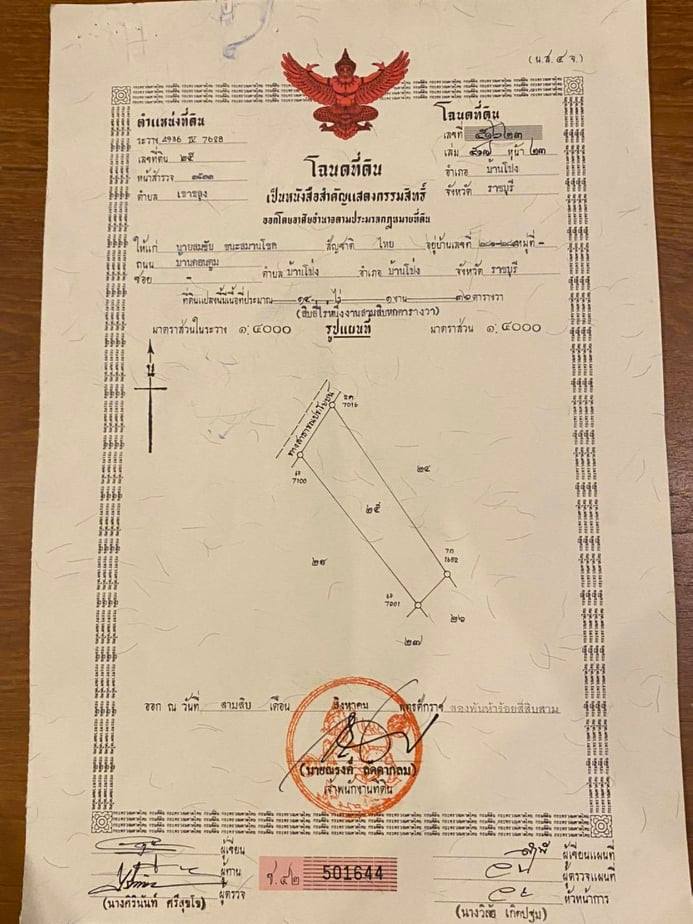 (น.ส.๔ จ.)
ตำแหน่งที่ดิน
ระวาง 4936 IV 7688
เลขที่ดิน ๒๕
หน้าสำรวจ
ตำบล เขาขลุง
โฉนดที่ดิน
เลขที่ ๕๑๖๒๓
เล่ม ๕๑๗ หน้า ๒๓
อำเภอ บ้านโป่ง
จังหวัด ราชบุรี
โฉนดที่ดิน
เป็นหนังสือสำคัญแสดงกรรมสิทธิ์
ออกโดยอาศัยอำนาจตามประมวลกฎหมายที่ดิน
ให้แก่ นายสมชัย ชนะสมานโชค สัญชาติ ไทย อยู่บ้านเลขที่ หมู่ที่ -
ถนน ตำบล บ้านโป่ง อำเภอ บ้านโป่ง จังหวัด ราชบุรี
ซอย -
ที่ดินแปลงนี้มีเนื้อที่ประมาณ ๑๔ ไร่ ๑ งาน ๓๖ ตารางวา
(สิบสี่ไร่หนึ่งงานสามสิบหกตารางวา)
มาตราส่วนในระวาง ๑:๔๐๐๐ รูปแผนที่ มาตราส่วน ๑:๔๐๐๐
น
ทางสาธารณประโยชน์
7016
7100
๒๔
๒๕
1682
7001
๒๖
๒๗
ออก ณ วันที่ สามสิบ เดือน สิงหาคม พุทธศักราช สองพันห้าร้อยสี่สิบสาม
(นายณรงค์
เจ้าพนักงานที่ดิน
ผู้เขียน
ผู้ทาน
ผู้ตรวจ
(นางศิรินันท์ ศรีสุขโข)
ช.๔๒ 501644
ผู้เขียนแผนที่
ผู้ตรวจแผนที่
หัวหน้าการ
เกิดปฐม)